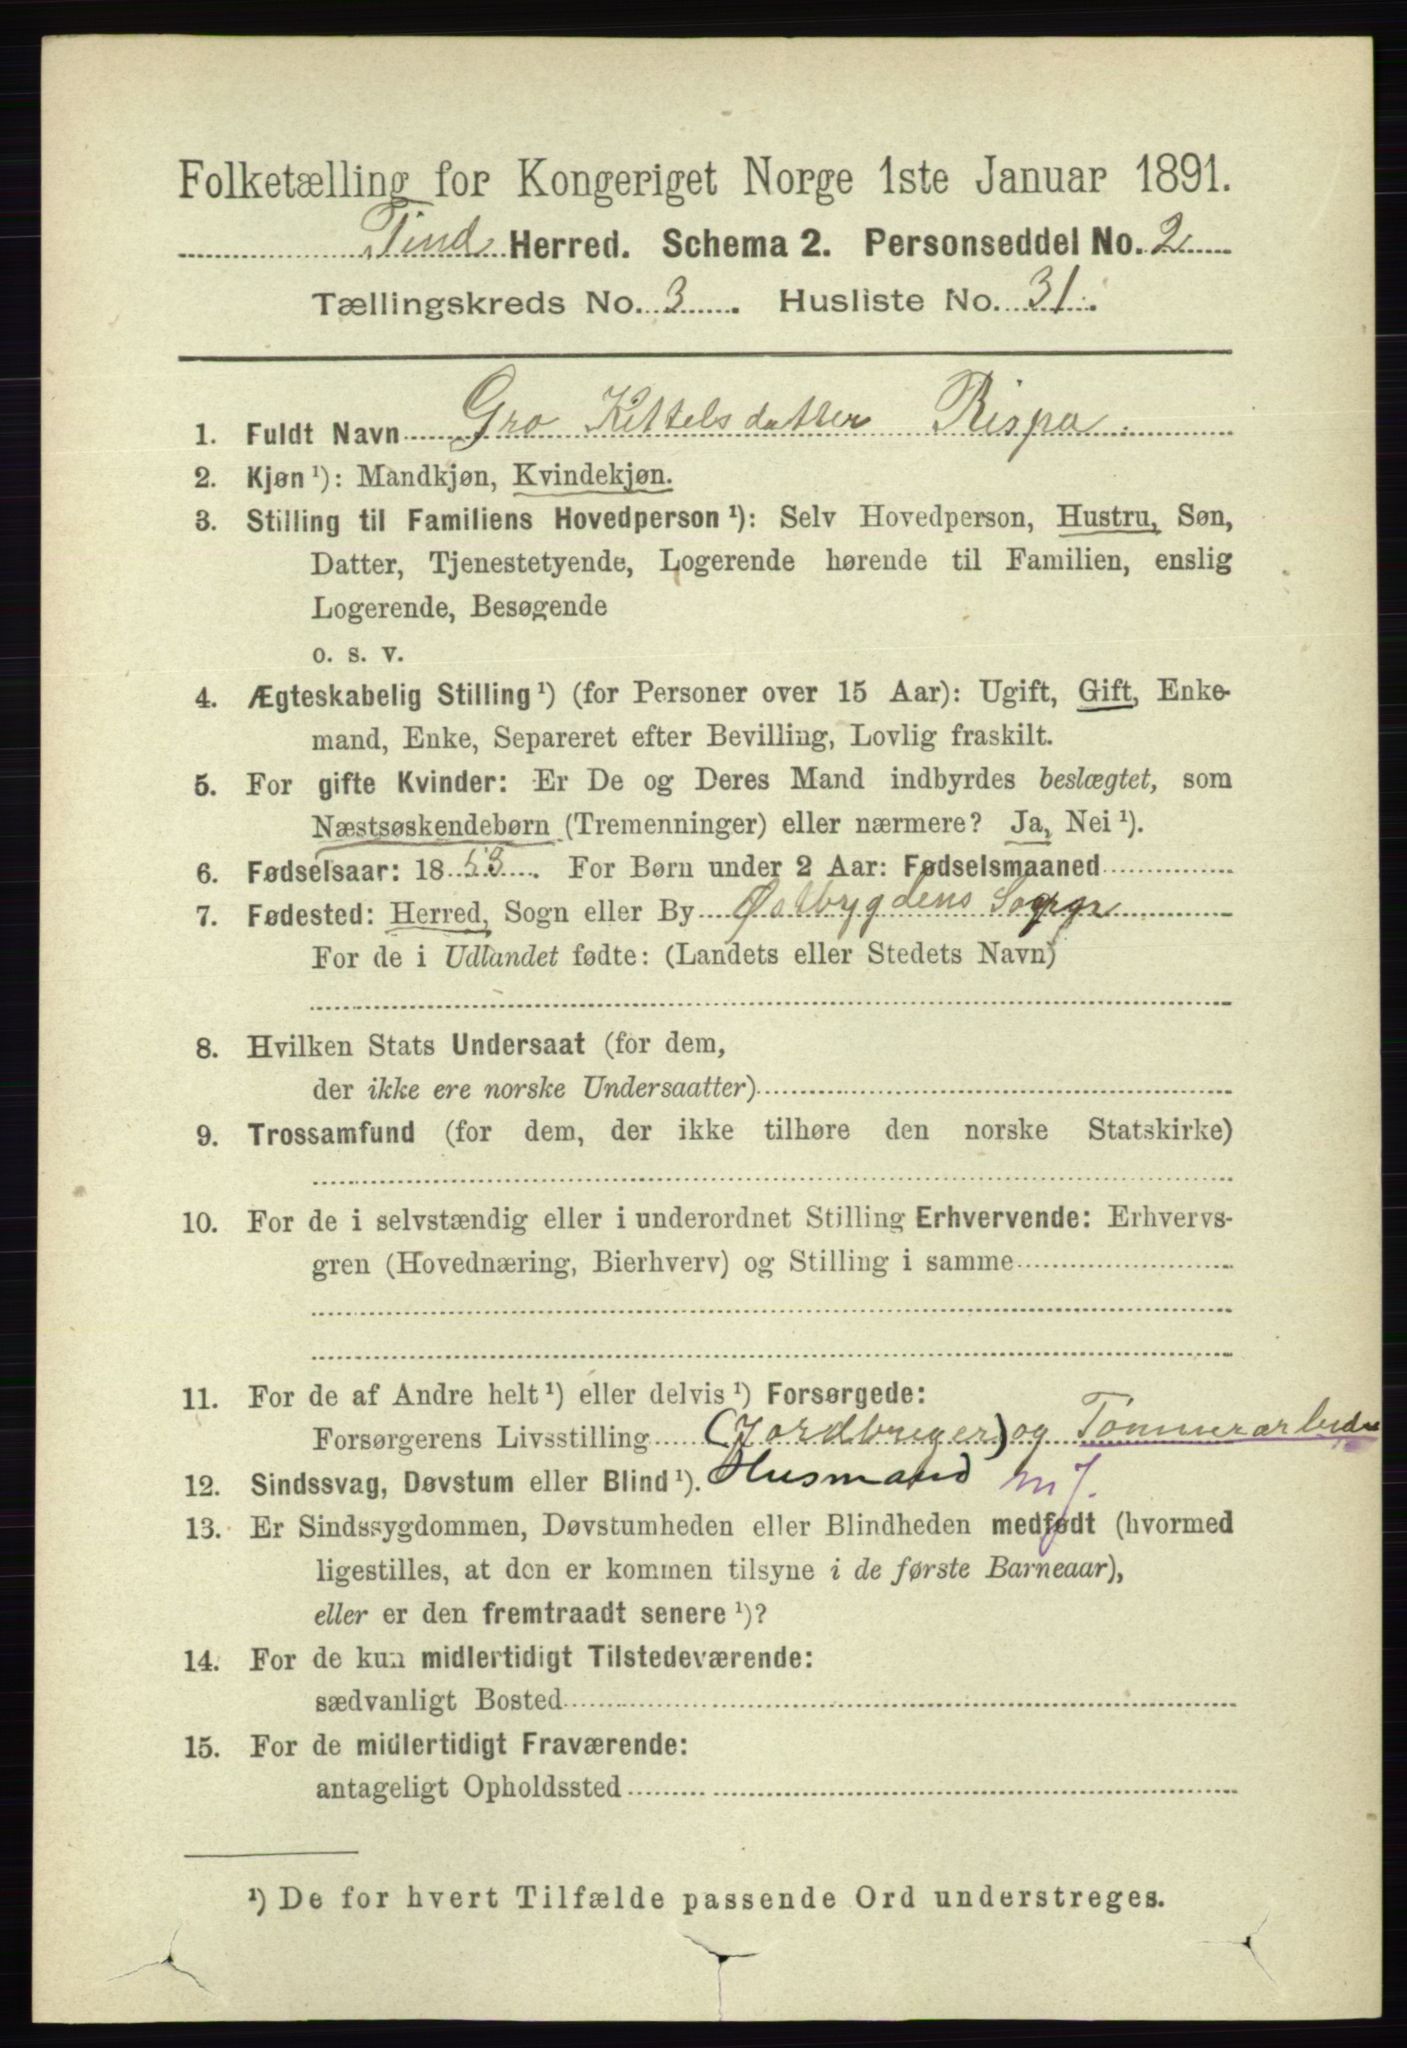 Folketælling for Kongeriget Norge 1ste Januar 1891.
Tind Herred. Schema 2. Personseddel No. 2
Tællingskreds No. 3. Husliste No. 31.
1. Fuldt Navn Gro Kittelsdatter Rispa
2. Kjøn ¹): Mandkjøn, Kvindekjøn.
3. Stilling til Familiens Hovedperson ¹): Selv Hovedperson, Hustru, Søn,
Datter, Tjenestetyende, Logerende hørende til Familien, enslig
Logerende, Besøgende
o. s. v.
4. Ægteskabelig Stilling ¹) (for Personer over 15 Aar): Ugift, Gift, Enke-
mand, Enke, Separeret efter Bevilling, Lovlig fraskilt.
5. For gifte Kvinder: Er De og Deres Mand indbyrdes beslægtet, som
Næstsøskendebørn (Tremenninger) eller nærmere? Ja, Nei ¹).
6. Fødselsaar: 1853. For Børn under 2 Aar: Fødselsmaaned
7. Fødested: Herred, Sogn eller By Østbygdens Sogn
For de i Udlandet fødte: (Landets eller Stedets Navn)
8. Hvilken Stats Undersaat (for dem,
der ikke ere norske Undersaatter)
9. Trossamfund (for dem, der ikke tilhøre den norske Statskirke)
10. For de i selvstændig eller i underordnet Stilling Erhvervende: Erhvervs-
gren (Hovednæring, Bierhverv) og Stilling i samme
11. For de af Andre helt ¹) eller delvis ¹) Forsørgede:
Forsørgerens Livsstilling (Jordbruger) og Tømmerarbeider
12. Sindssvag, Døvstum eller Blind ¹). Husmand m J.
13. Er Sindssygdommen, Døvstumheden eller Blindheden medfødt (hvormed
ligestilles, at den er kommen tilsyne i de første Barneaar),
eller er den fremtraadt senere ¹)?
14. For de kun midlertidigt Tilstedeværende:
sædvanligt Bosted
15. For de midlertidigt Fraværende:
antageligt Opholdssted
¹) De for hvert Tilfælde passende Ord understreges.